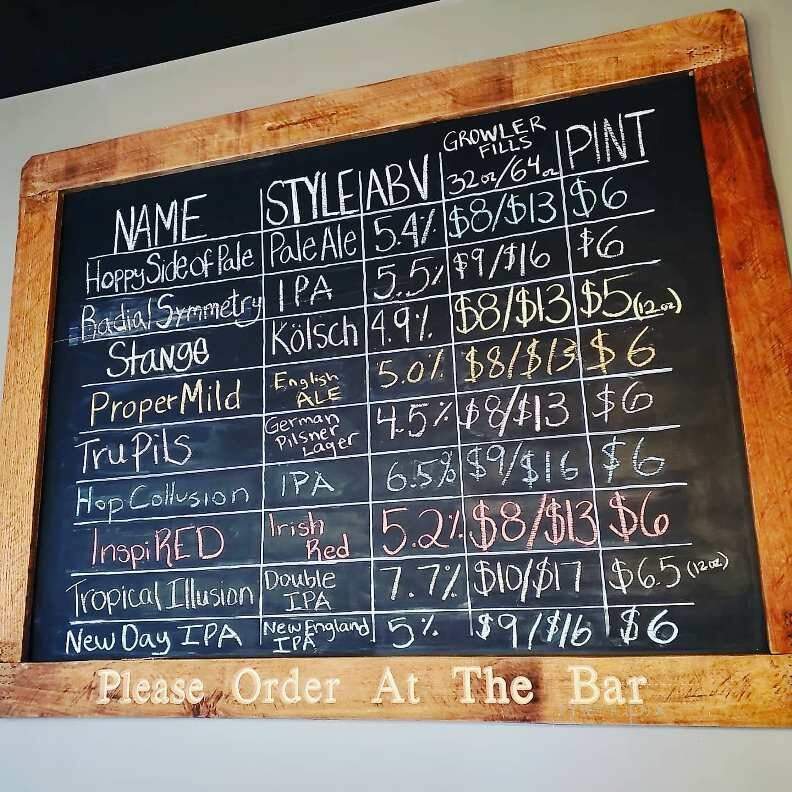 NAME STYLE ABV GROWLER FILLS 32oz/64oz PINT
Hoppy Side of Pale Pale Ale 5.4% $8/$13 $6
Radial Symmetry IPA 5.5% $9/$16 $6
Stange Kölsch 4.9% $8/$13 $5 (12oz)
Proper Mild English ALE 5.0% $8/$13 $6
Tru Pils German Pilsner Lager 4.5% $8/$13 $6
Hop Collusion IPA 6.5% $9/$16 $6
InspiRED Irish Red 5.2% $8/$13 $6
Tropical Illusion Double IPA 7.7% $10/$17 $6.5 (12oz)
New Day IPA New England IPA 5% $9/$16 $6
Please Order At The Bar